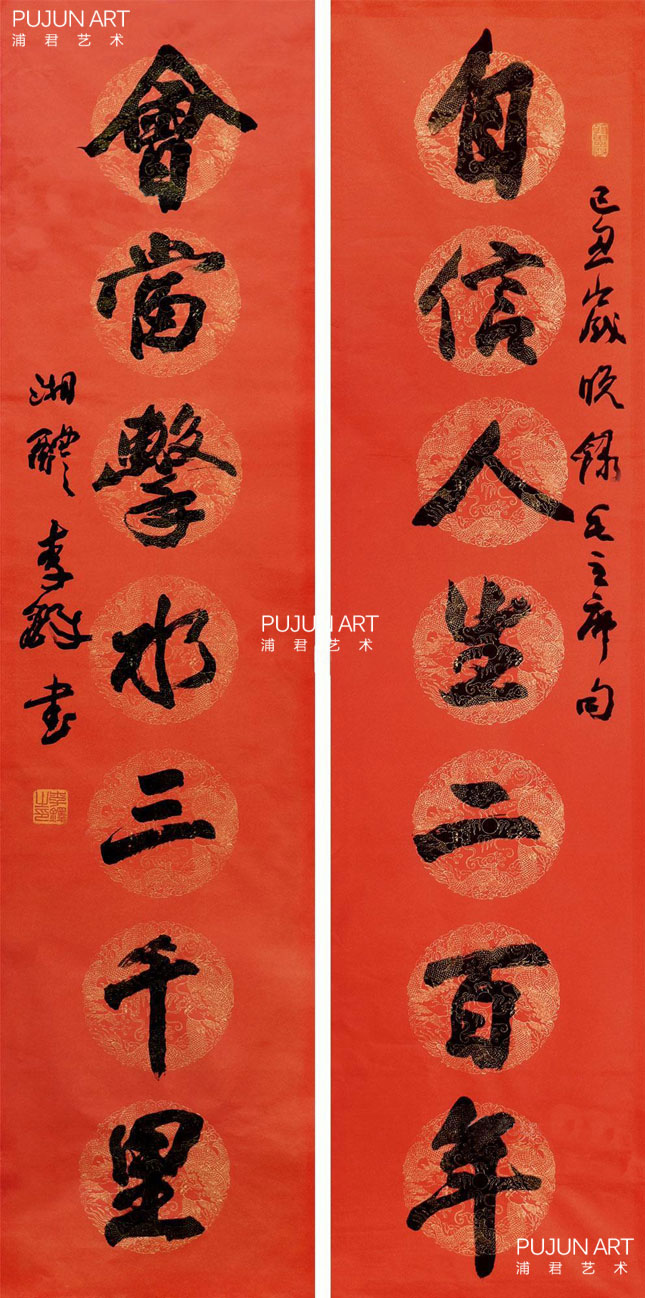 PUJUN ART
浦君艺术
己丑岁晚録毛主席句
自信人生二百年
會當擊水三千里
湘醴李鐸书
李鐸之印
PUJUN ART
浦君艺术
PUJUN ART
浦君艺术